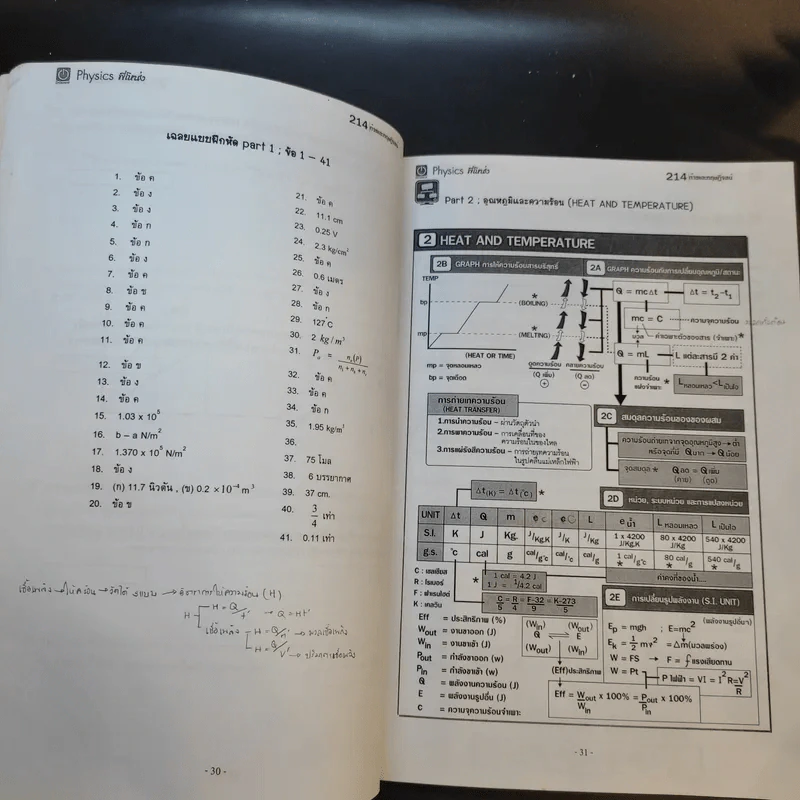 Physics พี่เหน่ง
214
เฉลยแบบฝึกหัด part 1 ; ข้อ 1 - 41
1. ข้อ ค
2. ข้อ ง
3. ข้อ ง
4. ข้อ ก
5. ข้อ ก
6. ข้อ ง
7. ข้อ ค
8. ข้อ ข
9. ข้อ ค
10. ข้อ ค
11. ข้อ ค
12. ข้อ ข
13. ข้อ ง
14. ข้อ ค
15. 1.03 x 10⁵
16. b – a N/m²
17. 1.370 x 10⁵ N/m²
18. ข้อ ง
19. (ก) 11.7 นิวตัน , (ข) 0.2 × 10⁻⁴ m³
20. ข้อ ข
21. ข้อ ค
22. 11.1 cm
23. 0.25 V
24. 2.3 kg/cm²
25. ข้อ ค
26. 0.6 เมตร
27. ข้อ ง
28. ข้อ ก
29. 127°C
30. 2 kg/m³
31.
32. ข้อ ค
33. ข้อ ค
34. ข้อ ก
35. 1.95 kg/m³
36.
37. 75 โมล
38. 6 บรรยากาศ
39. 37 cm.
40. 3/4 เท่า
41. 0.11 เท่า
H = Q/t → Q = Ht
H
- 30 -
Physics พี่เหน่ง
214
Part 2 ; อุณหภูมิและความร้อน (HEAT AND TEMPERATURE)
2 HEAT AND TEMPERATURE
2B GRAPH การให้ความร้อนสารบริสุทธิ์
2A GRAPH ความร้อนกับการเปลี่ยนอุณหภูมิ/สถานะ
TEMP
bp
mp
(BOILING)
(MELTING)
(HEAT OR TIME)
mp = จุดหลอมเหลว
bp = จุดเดือด
ดูดความร้อน (Q เพิ่ม)
คายความร้อน (Q ลด)
Q = mcΔt
Δt = t₂-t₁
mc = C
ความจุความร้อน
มวล
Q = mL
L แต่ละสารมี 2 ค่า
ความร้อนแฝงจำเพาะ
L หลอมเหลว < L เป็นไอ
การถ่ายเทความร้อน
(HEAT TRANSFER)
1.การนำความร้อน – ผ่านวัตถุตัวนำ
2.การพาความร้อน – การเคลื่อนที่ของ
ความร้อนในของไหล
3.การแผ่รังสีความร้อน – การถ่ายเทความร้อน
ในรูปคลื่นแม่เหล็กไฟฟ้า
2C สมดุลความร้อนของของผสม
ความร้อนถ่ายเทจากจุดอุณหภูมิสูง → ต่ำ
หรือจุดที่มี Q มาก → Q น้อย
จุดสมดุล * Q ลด = Q เพิ่ม
(คาย) (ดูด)
Δt(K) = Δt(°C) *
2D หน่วย, ระบบหน่วย และการแปลงหน่วย
UNIT Δt Q m c C L c น้ำ L หลอมเหลว L เป็นไอ
S.I. K J Kg. J/Kg.K J/K J/Kg 1 x 4200 J/Kg.K 80 x 4200 J/Kg 540 x 4200 J/Kg
g.s. °c cal g cal/g°c cal/°c cal/g 1 cal/g°c 80 cal/g 540 cal/g
C : เซลเซียส
R : โรเมอร์
F : ฟาเรนไฮต์
K : เคลวิน
1 cal = 4.2 J
1 J = 1/4.2 cal
ค่าคงที่ของน้ำ...
C/5 = R/4 = F-32/9 = K-273/5
2E การเปลี่ยนรูปพลังงาน (S.I. UNIT)
Eff = ประสิทธิภาพ (%)
Wout = งานขาออก (J)
Win = งานขาเข้า (J)
Pout = กำลังขาออก (w)
Pin = กำลังขาเข้า (w)
Q = พลังงานความร้อน (J)
E = พลังงานรูปอื่น (J)
C = ความจุความร้อนจำเพาะ
(Win) (Wout)
Q ⇌ E
(Wout) (Win)
(Eff)ประสิทธิภาพ
Ep = mgh ; E=mc² (พลังงานรูปอื่นๆ)
Ek = ½ mv² = Δm(มวลพร่อง)
W = FS → F = f แรงเสียดทาน
W = Pt → P ไฟฟ้า = VI = I²R = V²/R
Eff = Wout/Win x 100% = Pout/Pin x 100%
- 31 -